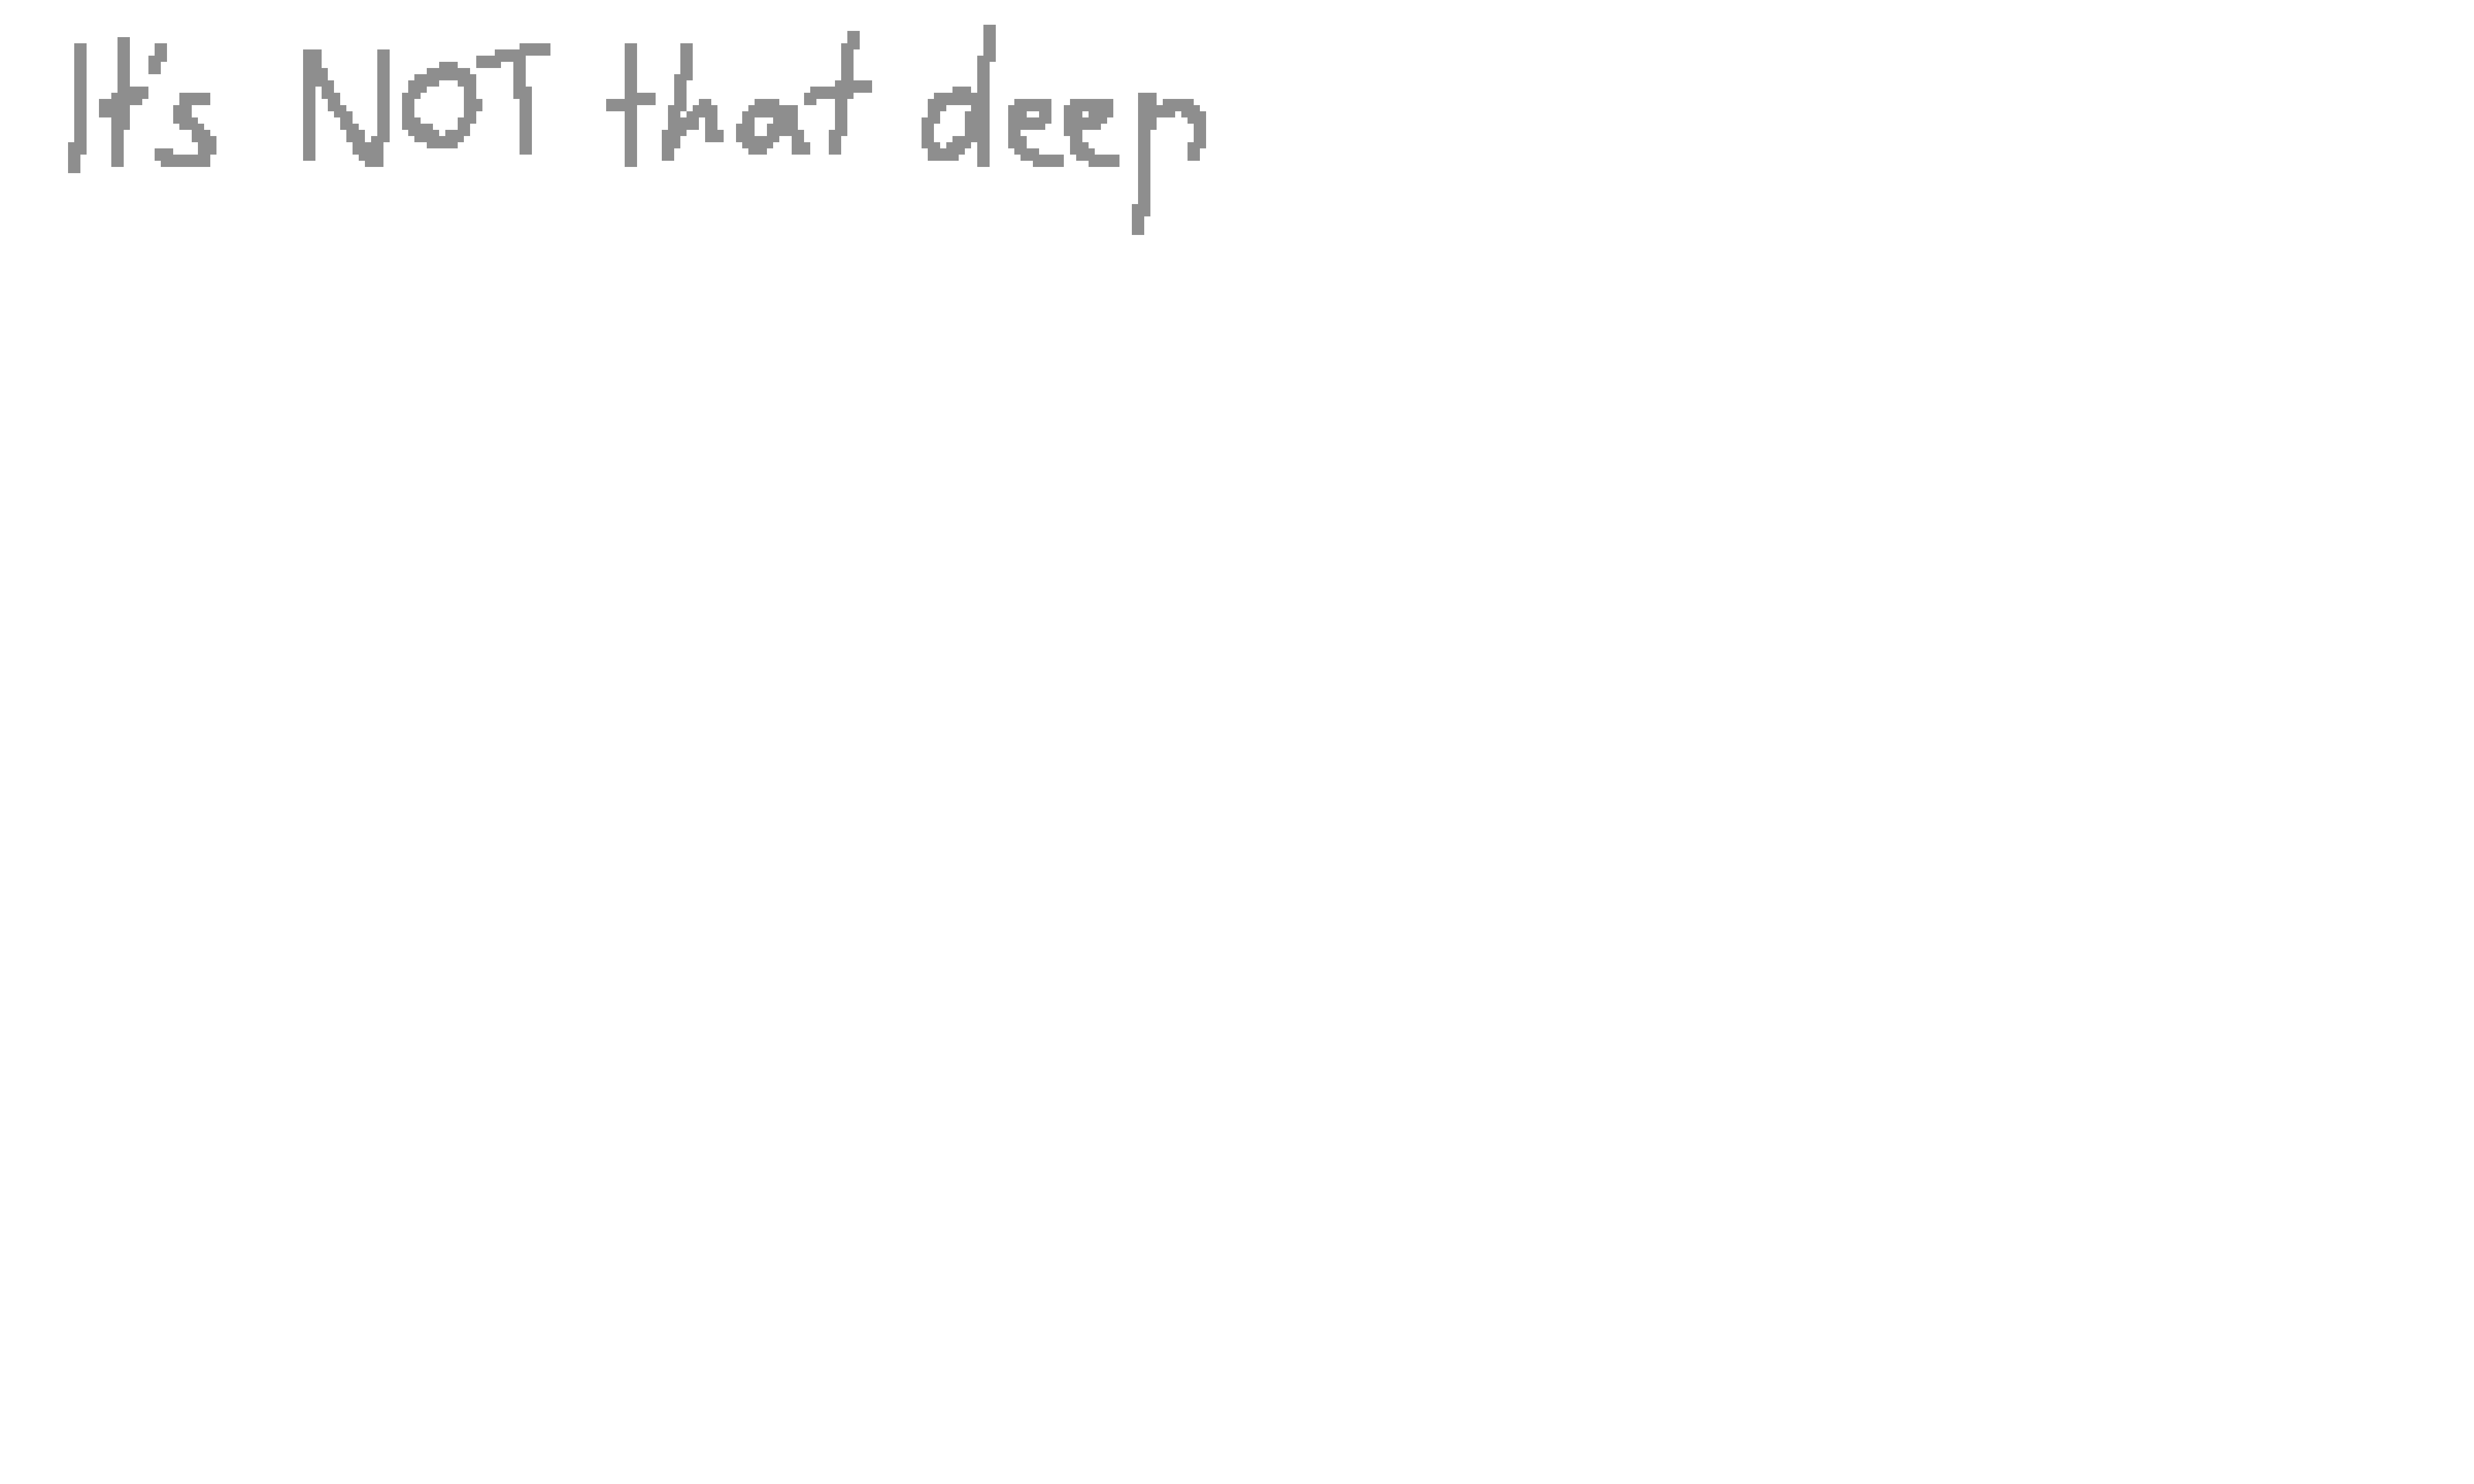 It's NOT that deep